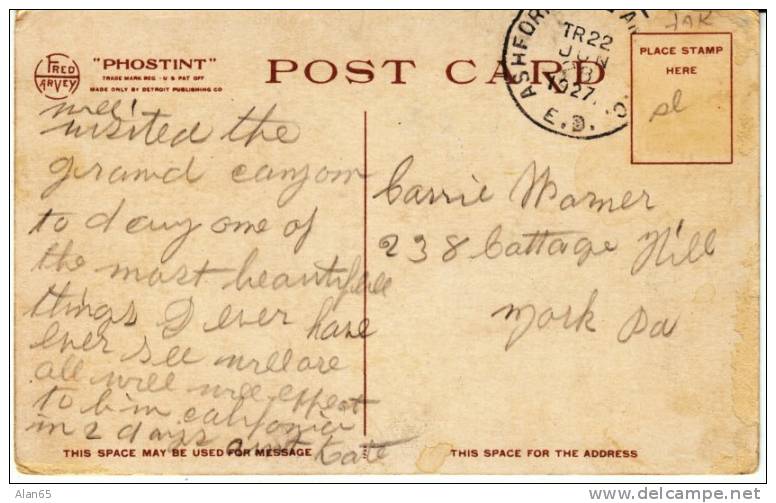 FRED HARVEY
"PHOSTINT"
TRADE MARK REG. U S PAT OFF
MADE ONLY BY DETROIT PUBLISHING CO
POST CARD
ASHFOR
TR 22
JUN
1927
E.D.
PLACE STAMP
HERE
well
visited the
grand canyon
to day one of
the most beautifull
things I ever have
ever see well are
all well will expect
to b in california
in 2 days aunt Kate
Carrie Warner
238 Cottage Hill
York Pa
THIS SPACE MAY BE USED FOR MESSAGE
THIS SPACE FOR THE ADDRESS
Alan65
http://www.delcampe.net